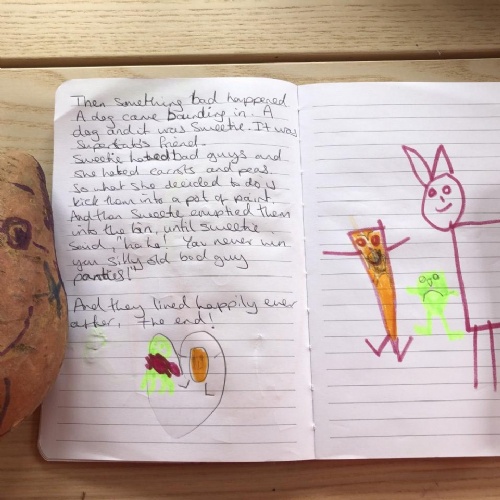 Then something bad happened
A dog came bounding in. A
dog and it was Sweetie. It was
Supertato's friend.
Sweetie hated bad guys and
she hated carrots and peas.
So what she decided to do is
kick them into a pot of paint.
And then Sweetie emptied them
into the bin, until sweetie
said, "ha ha! You never win
you silly old bad guy
panties!"
And they lived happily ever
after, The end!